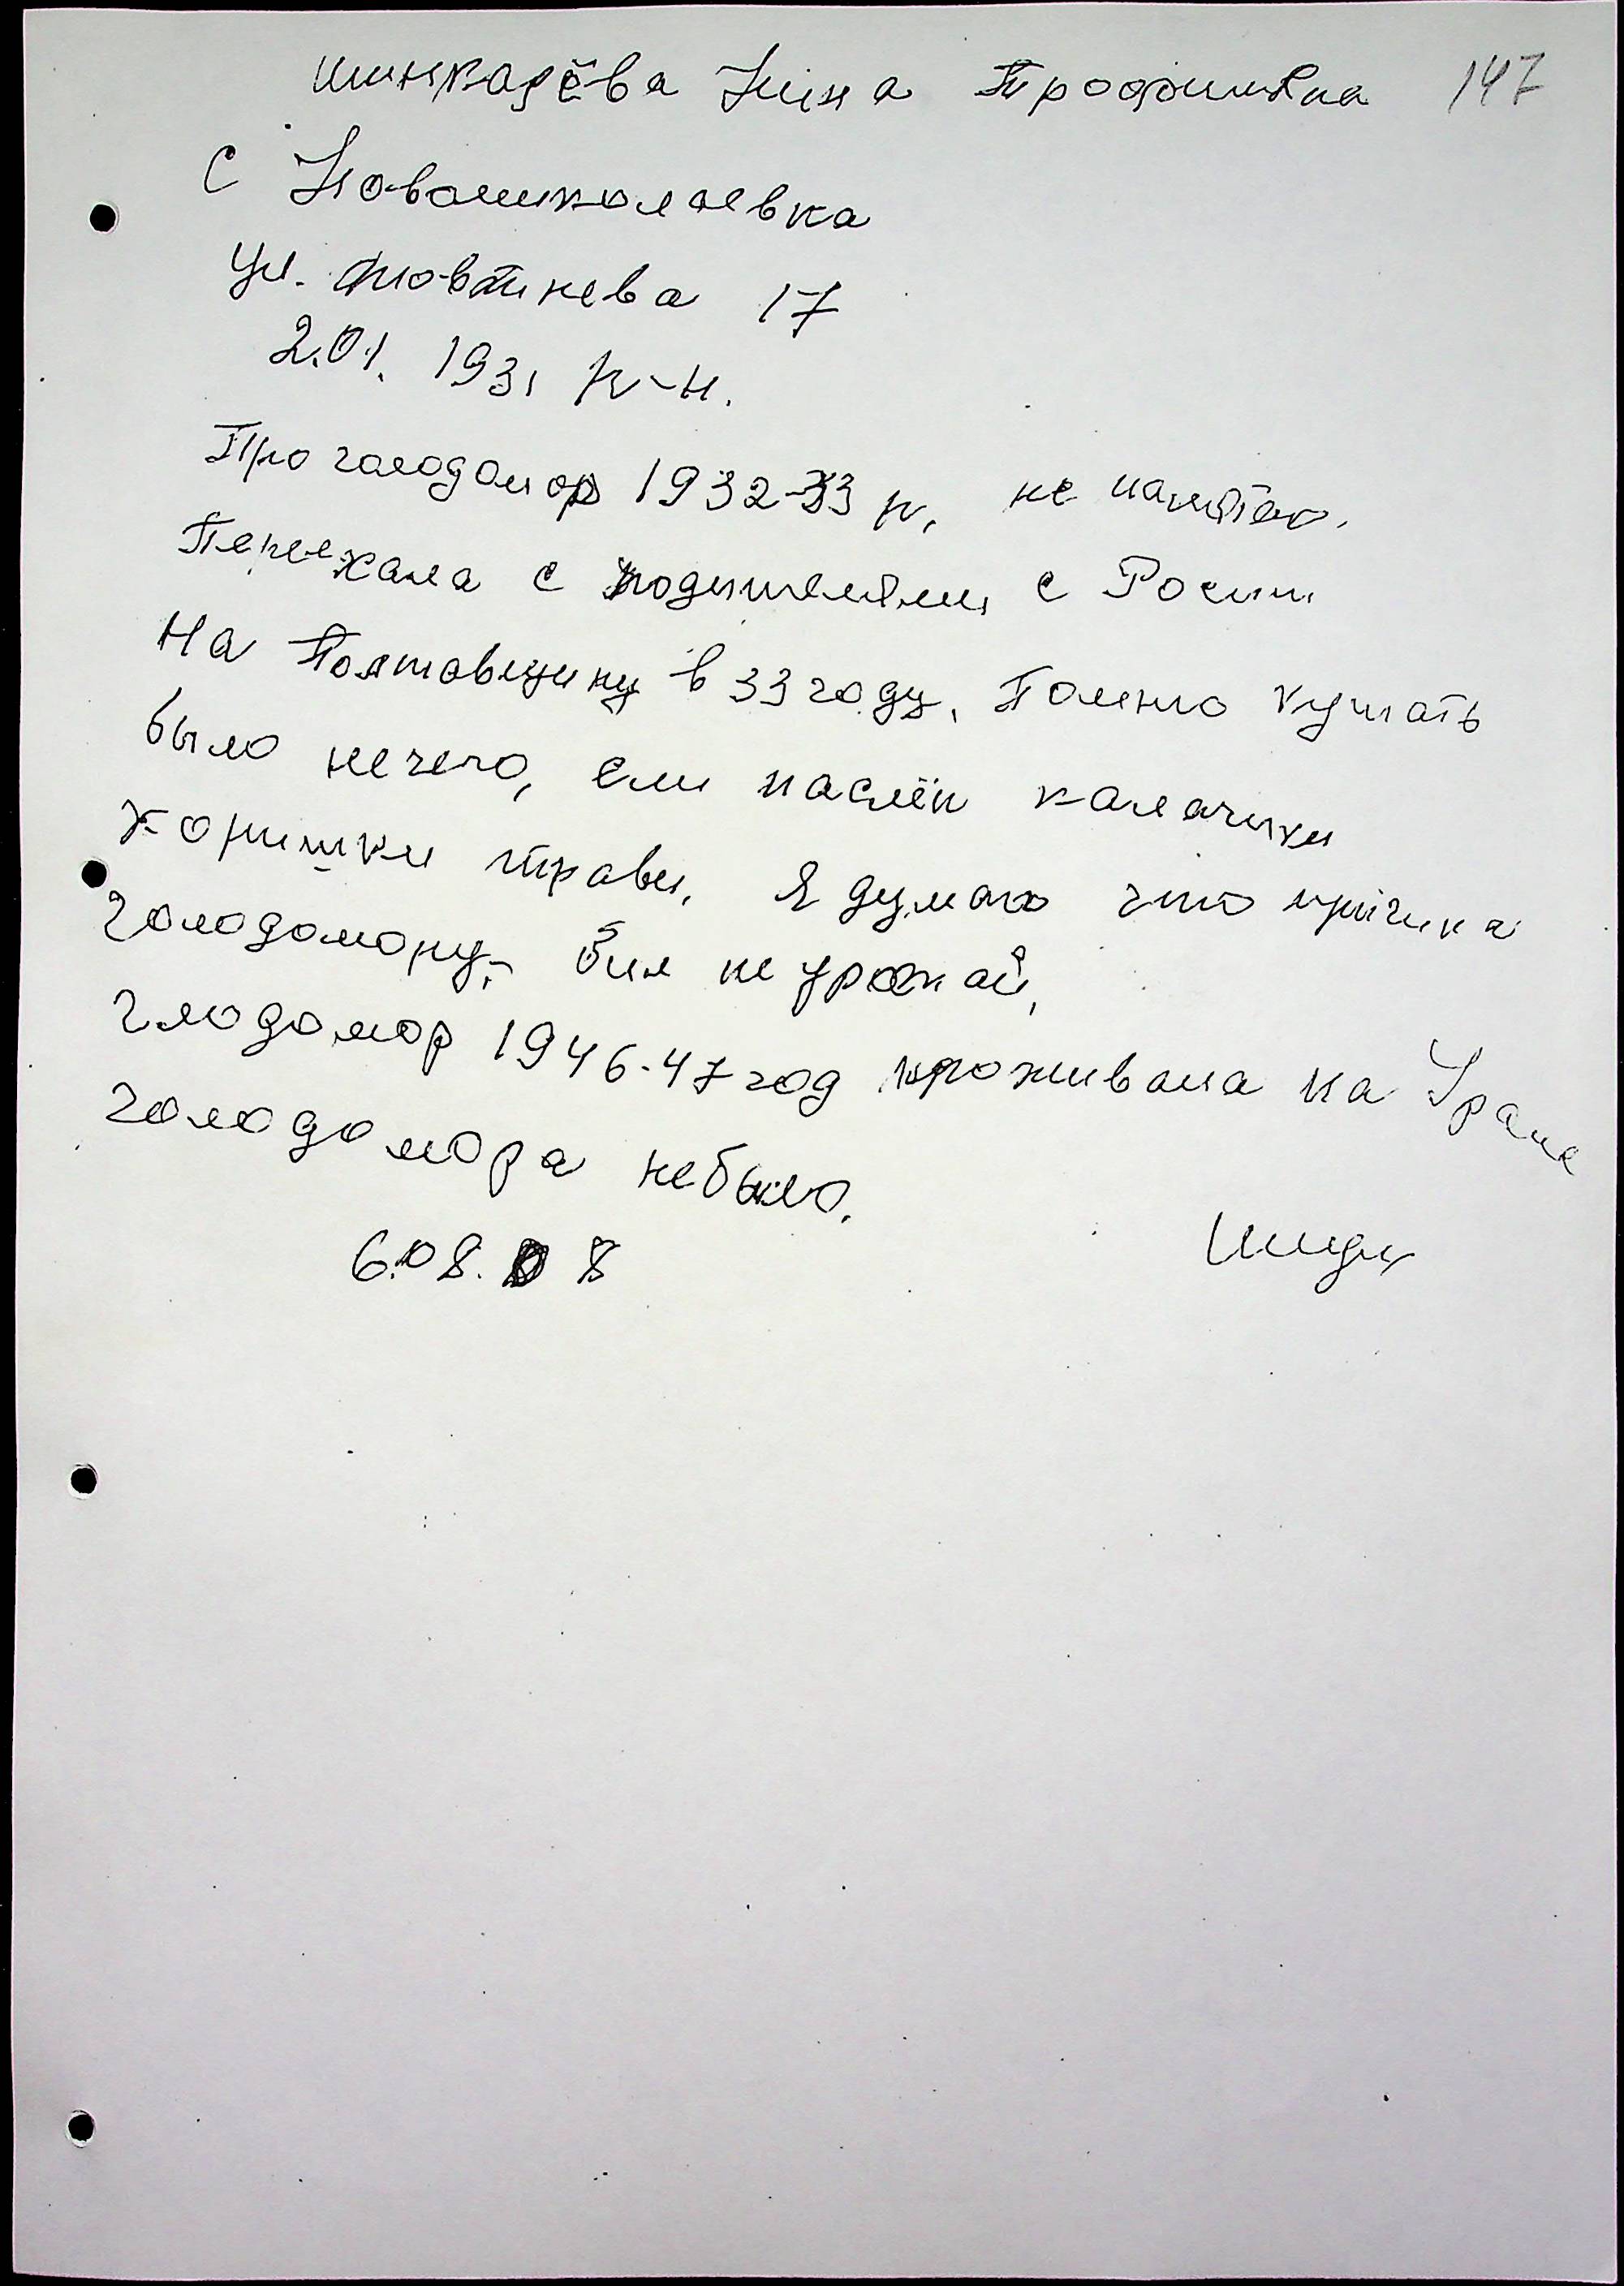 Шинкарёва Нина Трофимівна 147
С Новониколаевка
ул. 17
2.01. 1931 р-н.
Про голодомор 1932-33 р, не памятаю.
Переехала с родителями с Росии
На Полтавщину в 33 году, Помню кушать
было нечего, ели паслён калачики
коришки травы, Я думаю что причина
голодомору,- Был не урожай,
глодомор 1946-47 год проживала на Урале
голодомора небыло.
6.08.08 Шидх